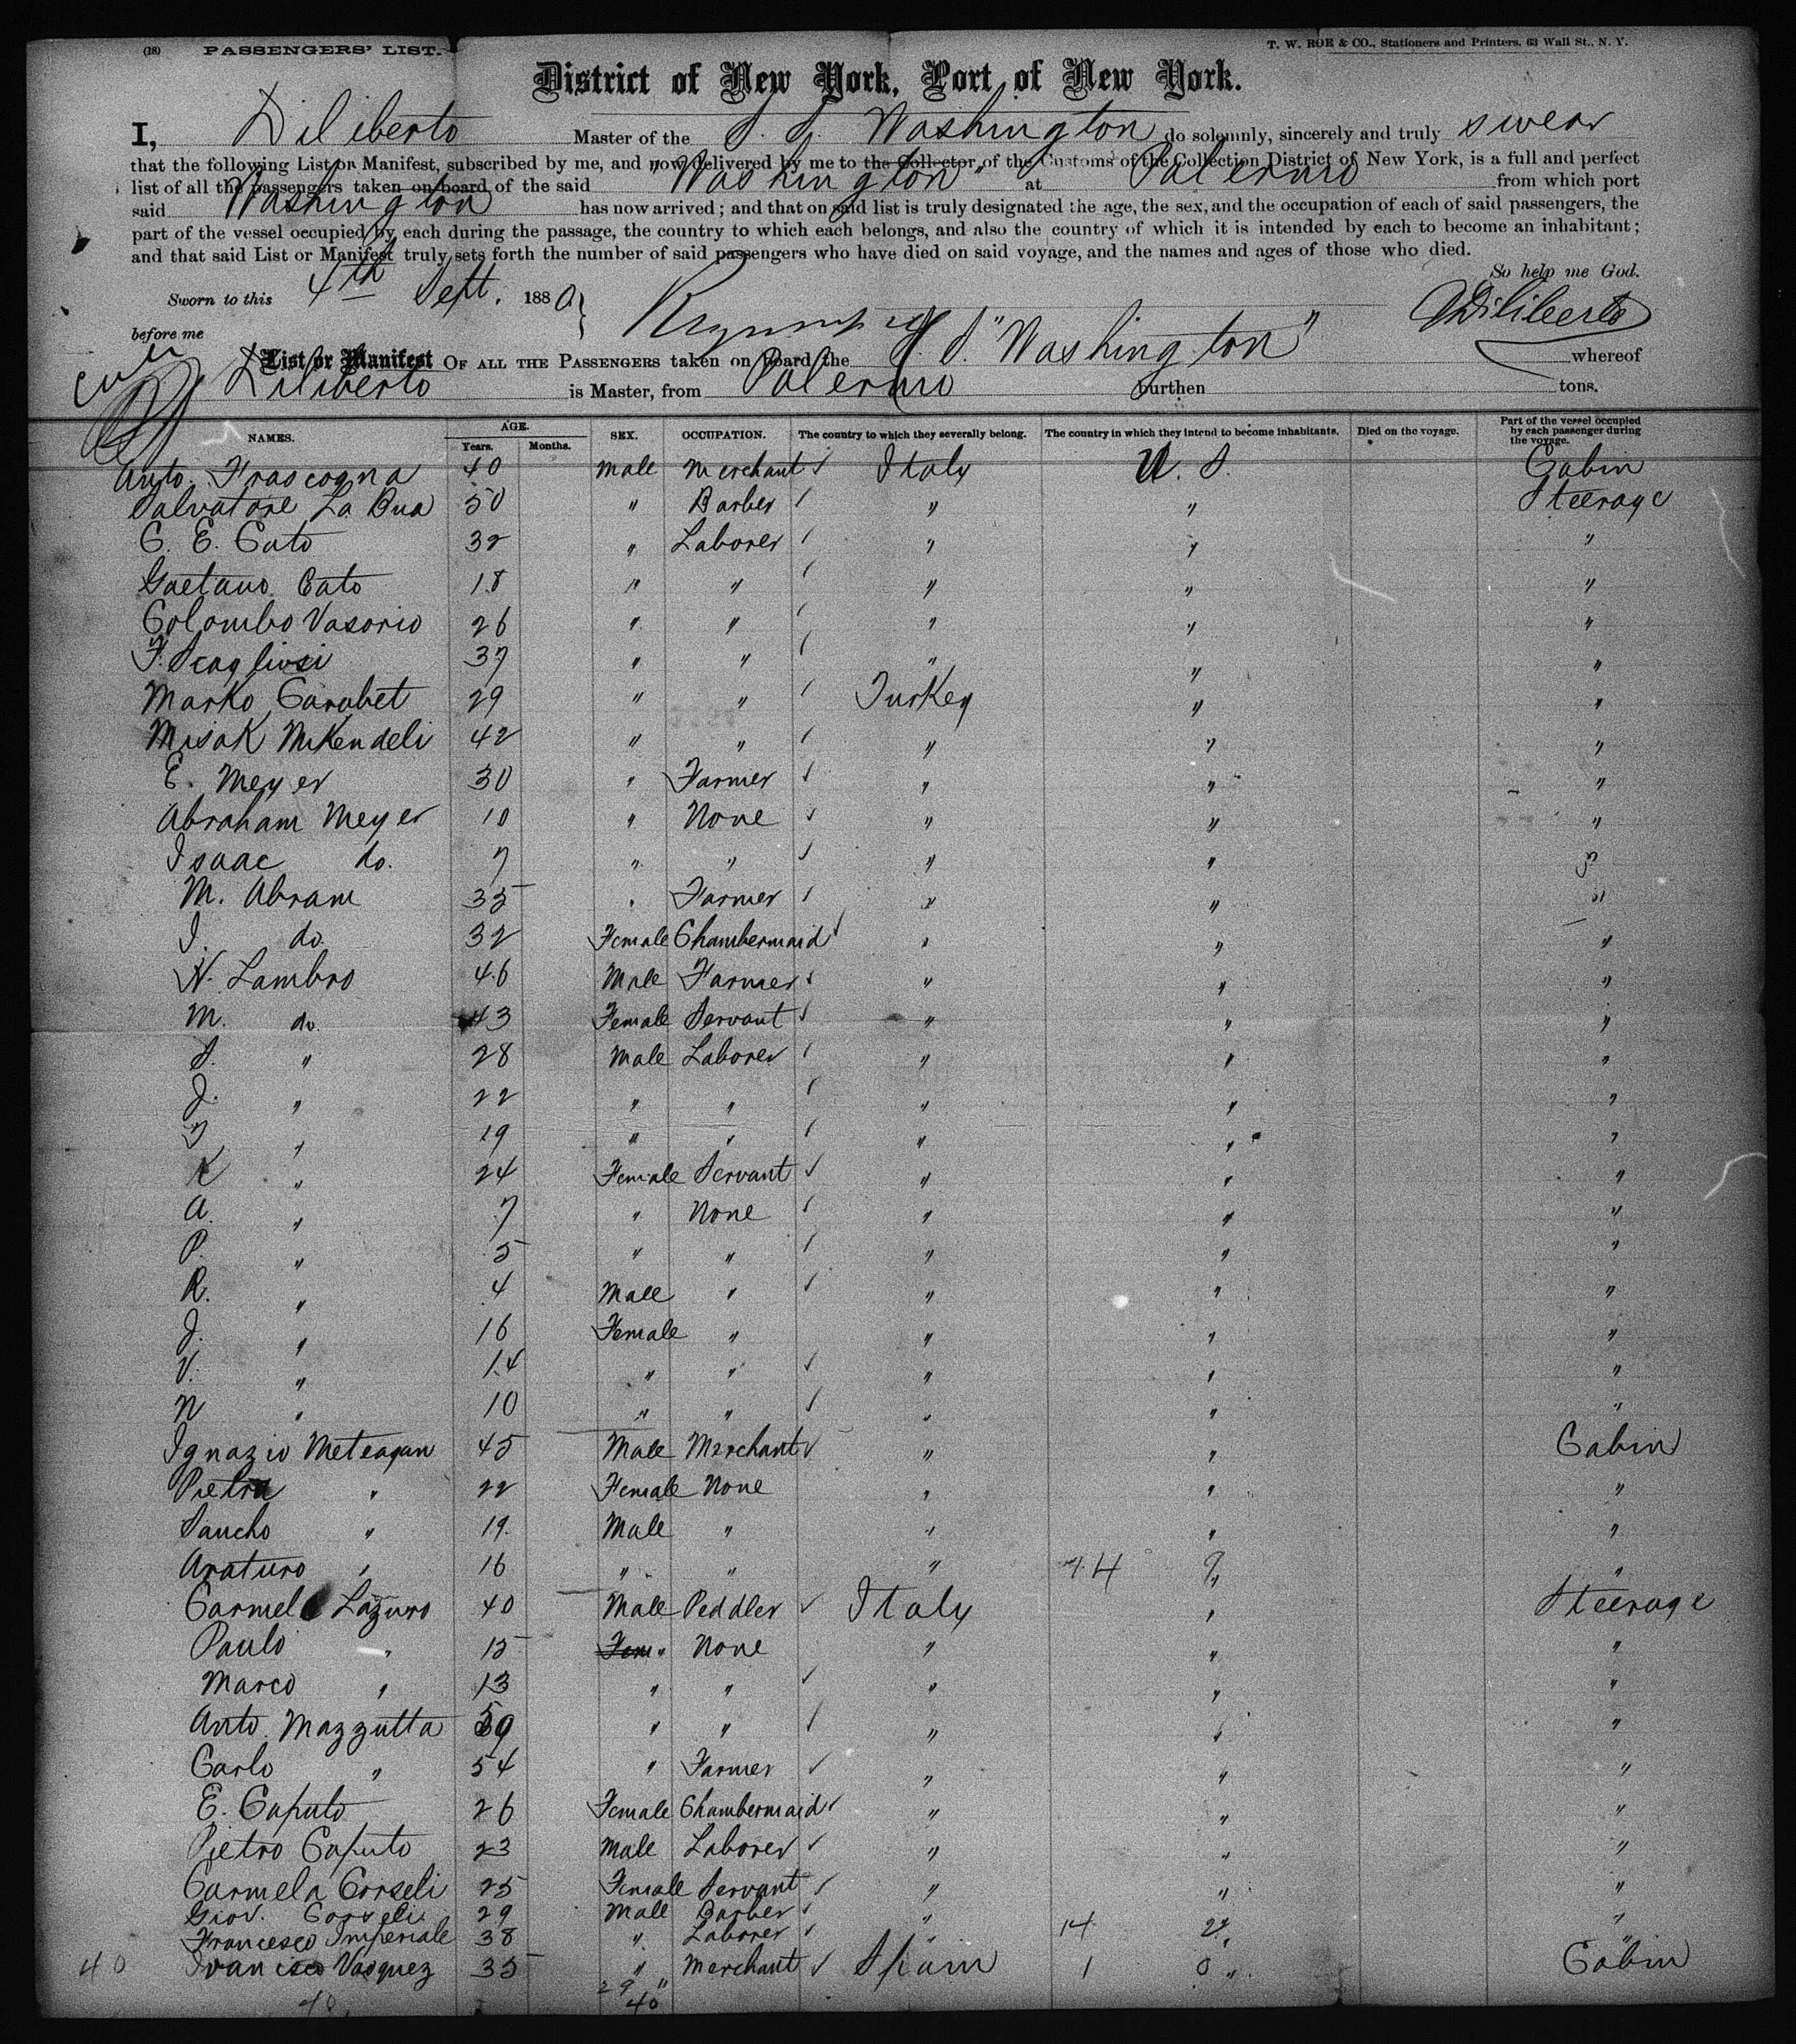 (18) PASSENGERS' LIST. T. W. ROE & CO., Stationers and Printers, 63 Wall St., N. Y.
District of New York, Port of New York.
I, Diliberto Master of the S. S. Washington do solemnly, sincerely and truly swear
that the following List or Manifest, subscribed by me, and now delivered by me to the Collector of the Customs of the Collection District of New York, is a full and perfect
list of all the passengers taken on board of the said "Washington" at Palermo from which port
said Washington has now arrived; and that on said list is truly designated the age, the sex, and the occupation of each of said passengers, the
part of the vessel occupied by each during the passage, the country to which each belongs, and also the country of which it is intended by each to become an inhabitant;
and that said List or Manifest truly sets forth the number of said passengers who have died on said voyage, and the names and ages of those who died.
So help me God.
Sworn to this 4th Sept. 1880 Diliberto
before me
List or Manifest OF ALL THE PASSENGERS taken on board the S. S. "Washington" whereof
Diliberto is Master, from Palermo burthen tons.
NAMES. AGE. Years. Months. SEX. OCCUPATION. The country to which they severally belong. The country in which they intend to become inhabitants. Died on the voyage. Part of the vessel occupied by each passenger during the voyage.
Anto. Frascogna 40 Male Merchant Italy U. S. Cabin
Salvatore La Bua 50 " Barber " " Steerage
C. E. Cato 32 " Laborer " " "
Gaetano Cato 18 " " " " "
Colombo Vasorio 26 " " " " "
F. Scagliosi 37 " " " " "
Marko Carabet 29 " " Turkey " "
Misak Mikendeli 42 " " " " "
E. Meyer 30 " Farmer " " "
Abraham Meyer 10 " None " " "
Isaac do. 7 " " " " "
M. Abram 35 " Farmer " " "
J. do. 32 Female Chambermaid " " "
N. Lambro 46 Male Farmer " " "
M. do. 43 Female Servant " " "
S. " 28 Male Laborer " " "
J. " 22 " " " " "
" 19 " " " " "
K " 24 Female Servant " " "
A. " 7 " None " " "
P. " 5 " " " " "
R. " 4 Male " " " "
J. " 16 Female " " " "
V. " 14 " " " " "
N " 10 " " " " "
Ignazio Meteagan 45 Male Merchant " " Cabin
Pietra " 22 Female None " " "
Sancho " 19 Male " " " "
Araturo " 16 " " " " "
Carmel Lazuro 40 Male Pedler Italy " Steerage
Paulo " 15 Fem " None " " "
Marco " 13 " " " " "
Anto. Mazzutta 59 " " " " "
Carlo " 54 " Farmer " " "
E. Caputo 26 Female Chambermaid " " "
Pietro Caputo 23 Male Laborer " " "
Carmela Corseli 25 Female Servant " " "
Giov. Corseli 29 Male Barber " " "
Francesco Imperiale 38 " Laborer " 14 2 " "
40 Vasquez 35 " Merchant Spain 1 0 " Cabin
29 "
40 40